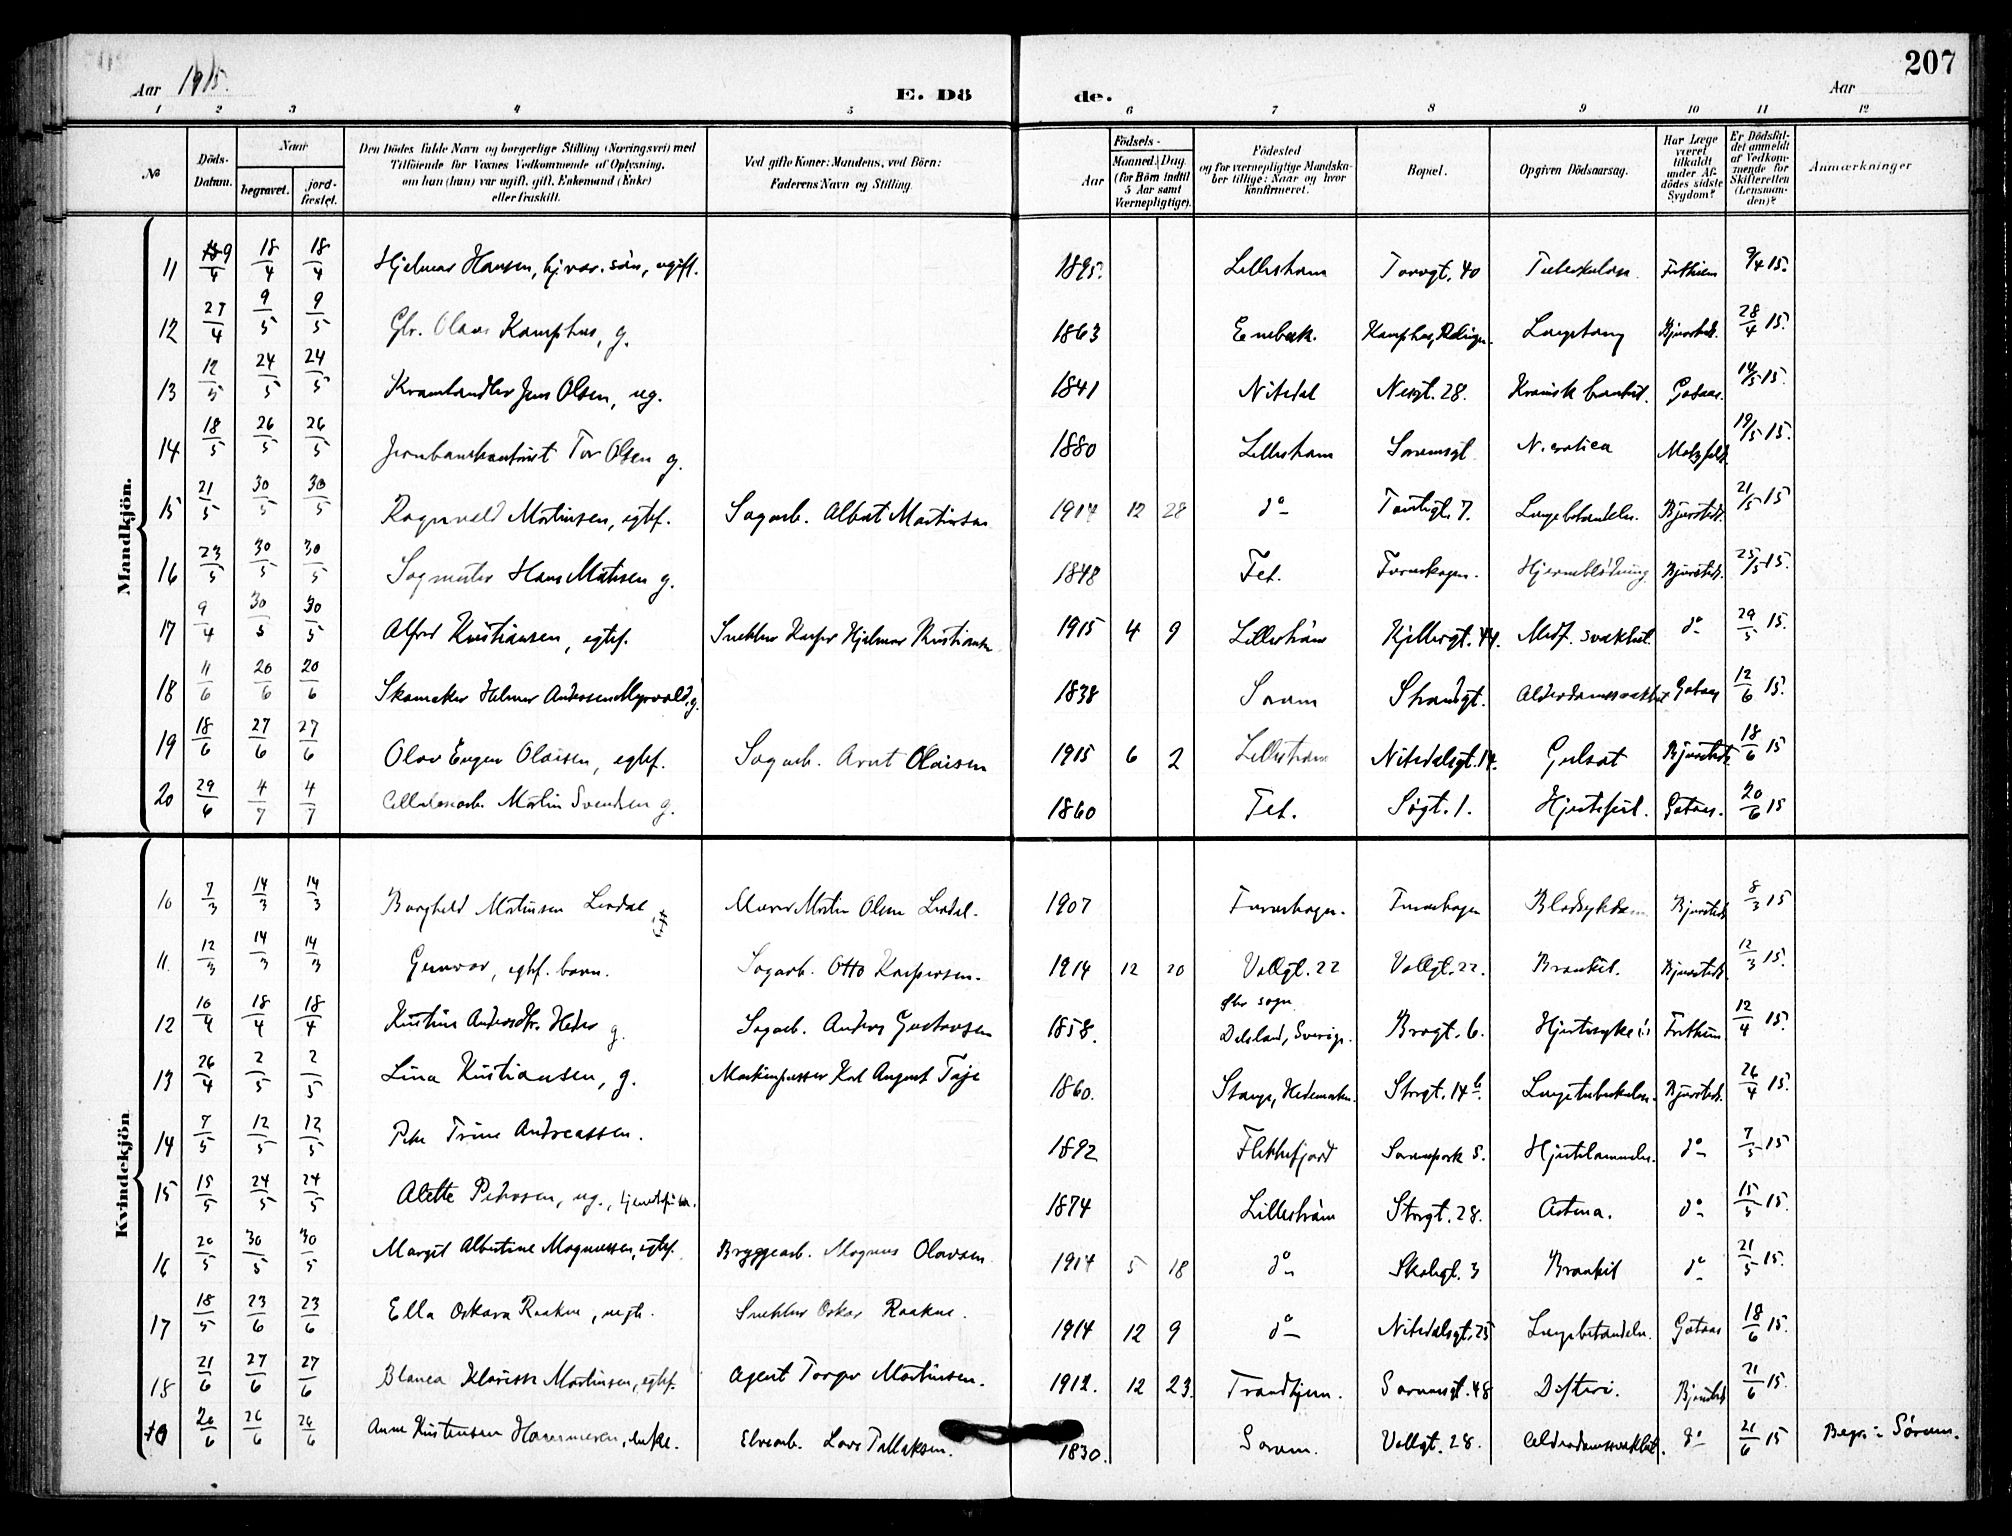 207
Aar 1915. E. Dö de. Aar
1 2 3 4 5 6 7 8 9 10 11 12
No Döds-Datum. Naar begravet. jord-fæstet. Den Dödes fulde Navn og borgerlige Stilling (Næringsvei) med Tilföiende for Voxnes Vedkommende af Oplysning, om han (hun) var ugift, gift, Enkemand (Enke) eller fraskilt. Ved gifte Koner: Mandens, ved Börn: Faderens Navn og Stilling. Aar Födsels- Maaned. Dag. (for Börn indtil 5 Aar samt Værnepligtige). Födested og for værnepligtige Mandska-ber tillige: Naar og hvor konfirmeret. Bopæl. Opgiven Dödsaarsag. Har Læge været tilkaldt under Af-dödes sidste Sygdom? Er Dödsfal-det anmeldt af Vedkom-mende for Skifteretten (Lensman-den)? Anmærkninger
Mandkjön.
11 9/4 18/4 18/4 Hjelmar Hansen, ugift. 1895. Lillestrøm Torvgt. 40 Tuberkulose Frthiem 9/4 15.
12 27/4 9/5 9/5 Olaus Kamphus, g. 1863 Enebak. Kamphus, Rælingen. Bjørstedt. 28/4 15.
13 12/5 24/5 24/5 Kramhandler Jens Olsen, ug. 1841 Nitedal Nergt. 28. Kronisk bronkit. Gotaas. 14/5 15.
14 18/5 26/5 26/5 Tor Olsen g. 1880 Lillestrøm Sørumsgt. Motzfeldt 19/5 15.
15 21/5 30/5 30/5 Ragnvald Martinsen, egtef. Sagarb. Albert Martinsen 1914 12 28 do Tomtegt. 7. Lungebetændelse. Bjørstedt. 21/5 15
16 23/5 30/5 30/5 Sagmester Hans Mathisen g. 1848 Fet. Furuskogen. Hjerneblødning Bjørstedt. 25/5 15.
17 9/4 30/5 30/5 Alfred Kristiansen, egtef. Snekker Kasper Hjelmar Kristiansen 1915 4 9 Lillestrøm Kjellergt. 44. Medf. svakhet. do 29/5 15.
18 11/6 20/6 20/6 Skomaker Helmer Andersen Myrvold, g. 1838 Sørum Strandgt. Alderdomssvakhet Gotaas 12/6 15.
19 18/6 27/6 27/6 Olav Eugen Olaisen, egtef. Sagarb. Arnt Olaisen 1915 6 2 Lillestrøm Nitedalsgt. 14. Gulsot Bjørstedt. 18/6 15
20 29/6 4/7 4/7 Cellulosearb. Martin Svendsen g. 1860 Fet. Søgt. 1. Hjertefeil. Gotaas. 20/6 15
Kvindekjön
10 7/3 14/3 14/3 Borghild Martinsen Lerdal Murer Martin Olsen Lerdal. 1907 Furuskogen. Furuskogen Blodsykdom Bjørstedt 8/3 15
11. 12/3 14/3 14/3 Gunvor, egtef. barn. Sagarb. Otto Kaspersen. 1914 12 20 Vollgt. 22 Vollgt. 22. Bronkit. Bjørstedt. 12/3 15.
12 10/4 18/4 18/4 Kristine Andersdtr. g. Sagarb. Anders Gustavsen 1858. sogn Dalsland, Sverige. Brogt. 6. Hjertesyke Frthiem. 12/4 15.
13 26/4 2/5 2/5 Lina Kristiansen, g. Maskinpasser Karl August Taje 1860. Stange, Hedemarken. Storgt. 14 b. Lungetuberkulose. Bjørstedt. 26/4 15.
14 7/5 12/5 12/5 Trine Andreassen. 1892 Flekkefjord Sørumpark 5. Hjertelammelse. do 7/5 15
15 15/5 24/5 24/5 Alette Pedersen, ug., 1874 Lillestrøm Storgt. 28. Astma. do 15/5 15.
16 20/5 30/5 30/5 Margit Albertine Magnussen, egtef. Bryggearb. Magnus Olavsen 1914 5 18 do Skolegt. 3 Bronkit do 21/5 15.
17 18/5 23/6 23/6 Ella Oskara Raakne, uegt. Snekker Oskar Raakne. 1914 12 9 do Nitedalsgt. 25 Lungebetændelse. Gotaas 18/6 15.
18 21/6 27/6 27/6 Blanca Klarisse Martinsen, egtef. Agent Torger Martinsen. 1912. 12 23. Trondhjem. Sørumsgt. 48 Difteri. Bjørstedt 21/6 15.
20/6 26/6 26/6 Anne Kristensen enke. Elvearb. Lars Tollaksen. 1830. Sørum. Vollgt. 28. Alderdomssvakhet. do 21/6 15 Begr. i Sørum.